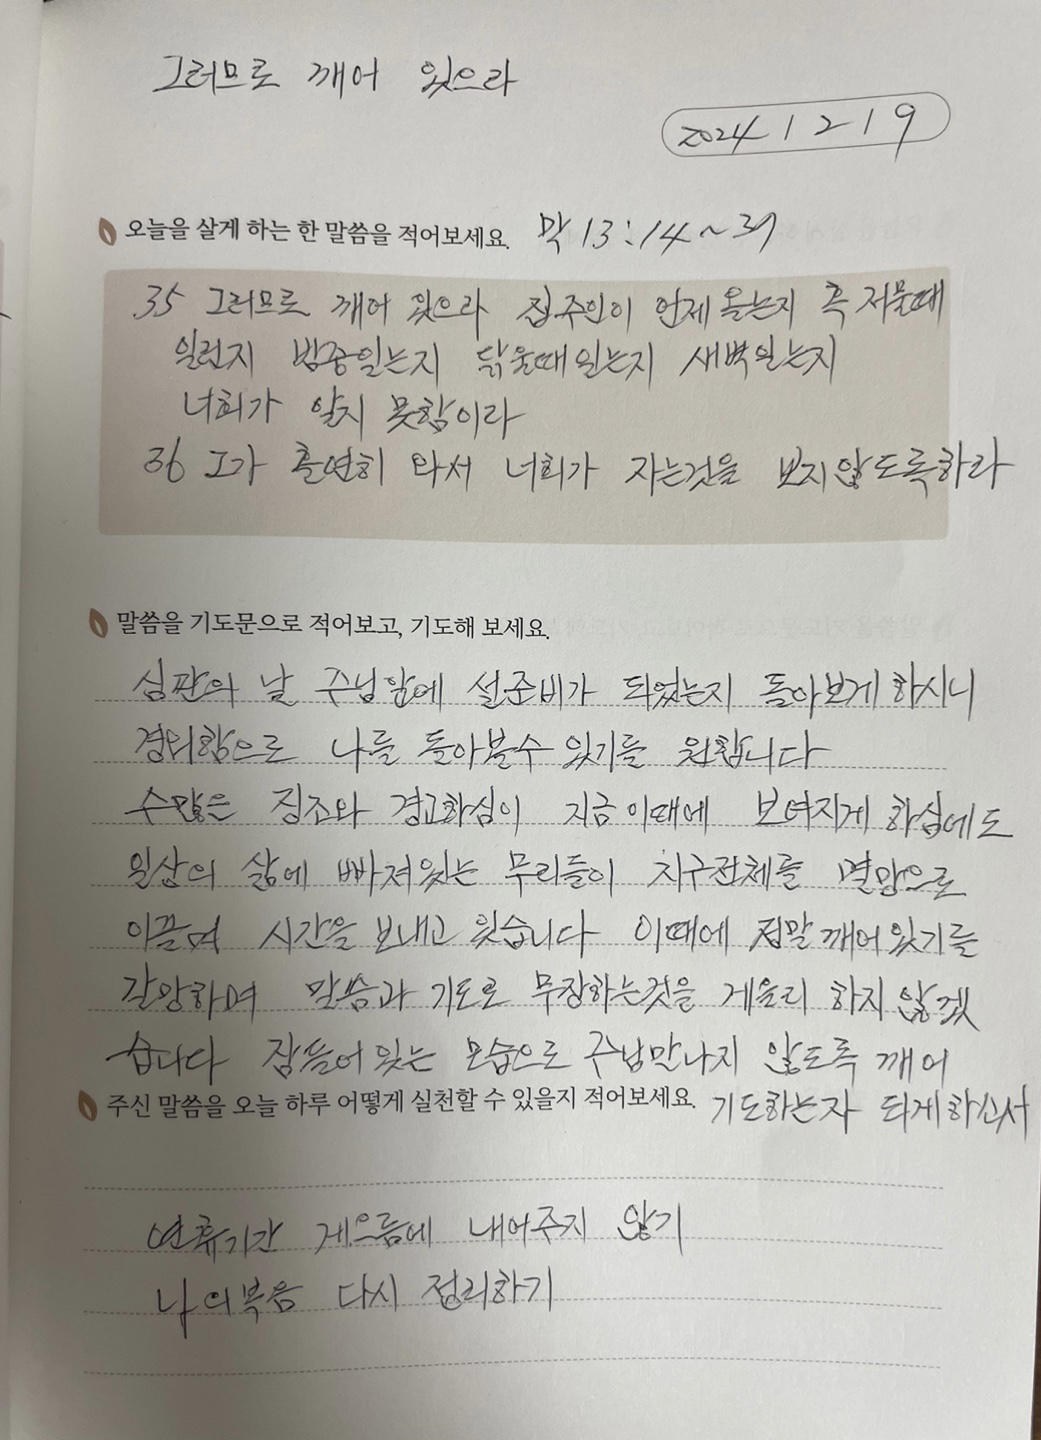 그러므로 깨어 있으라
2024 12 19
오늘을 살게 하는 한 말씀을 적어보세요. 막 13:14~37
35 그러므로 깨어 있으라 집주인이 언제 올는지 혹 저물때
일런지 밤중일는지 닭울때일는지 새벽일는지
너희가 알지 못함이라
36 그가 홀연히 와서 너희가 자는것을 보지않도록하라
말씀을 기도문으로 적어보고, 기도해 보세요.
심판의 날 주님앞에 설준비가 되었는지 돌아보게하시니
경외함으로 나를 돌아볼수 있기를 원합니다
수많은 징조와 경고하심이 지금 이때에 보여지게 하심에도
일상의 삶에 빠져있는 무리들이 지구전체를 멸망으로
이끌며 시간을 보내고 있습니다 이때에 정말 깨어있기를
갈망하며 말씀과 기도로 무장하는것을 게을리 하지않겠
습니다 잠들어있는 모습으로 주님만나지 않도록 깨어
주신 말씀을 오늘 하루 어떻게 실천할 수 있을지 적어보세요. 기도하는자 되게하소서
연휴기간 게으름에 내어주지 않기
나의복음 다시 정리하기